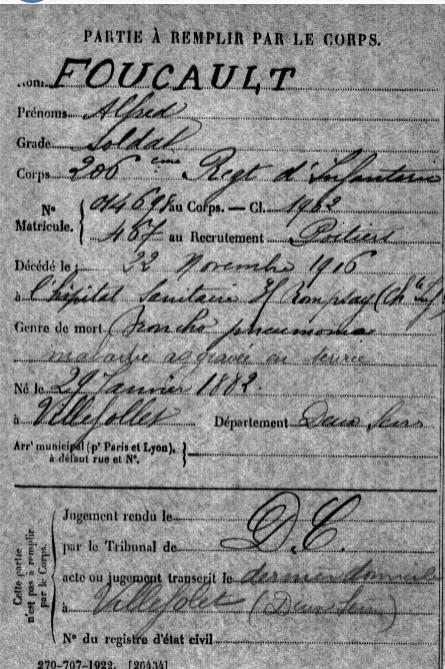 PARTIE À REMPLIR PAR LE CORPS.
Nom FOUCAULT
Prénoms Alfred
Grade Soldat
Corps 206 eme Regt d'Infanterie
Nº Matricule. { 014698 au Corps. — Cl. 1902
467 au Recrutement Poitiers
Décédé le 22 Novembre 1916
à l'hôpital Sanitaire Rompsay (Ch te Inf)
Genre de mort Broncho pneumonie
maladie aggravée en service
Né le 29 Janvier 1882.
à Villefollet Département Deux Sèvres
Arr t municipal (p r Paris et Lyon), à défaut rue et Nº. }
Cette partie n'est pas à remplir par le Corps.
Jugement rendu le
par le Tribunal de D.C.
acte ou jugement transcrit le dernier domicile
à Villefolet (Deux Sèvres)
Nº du registre d'état civil
270-707-1922. [26434]